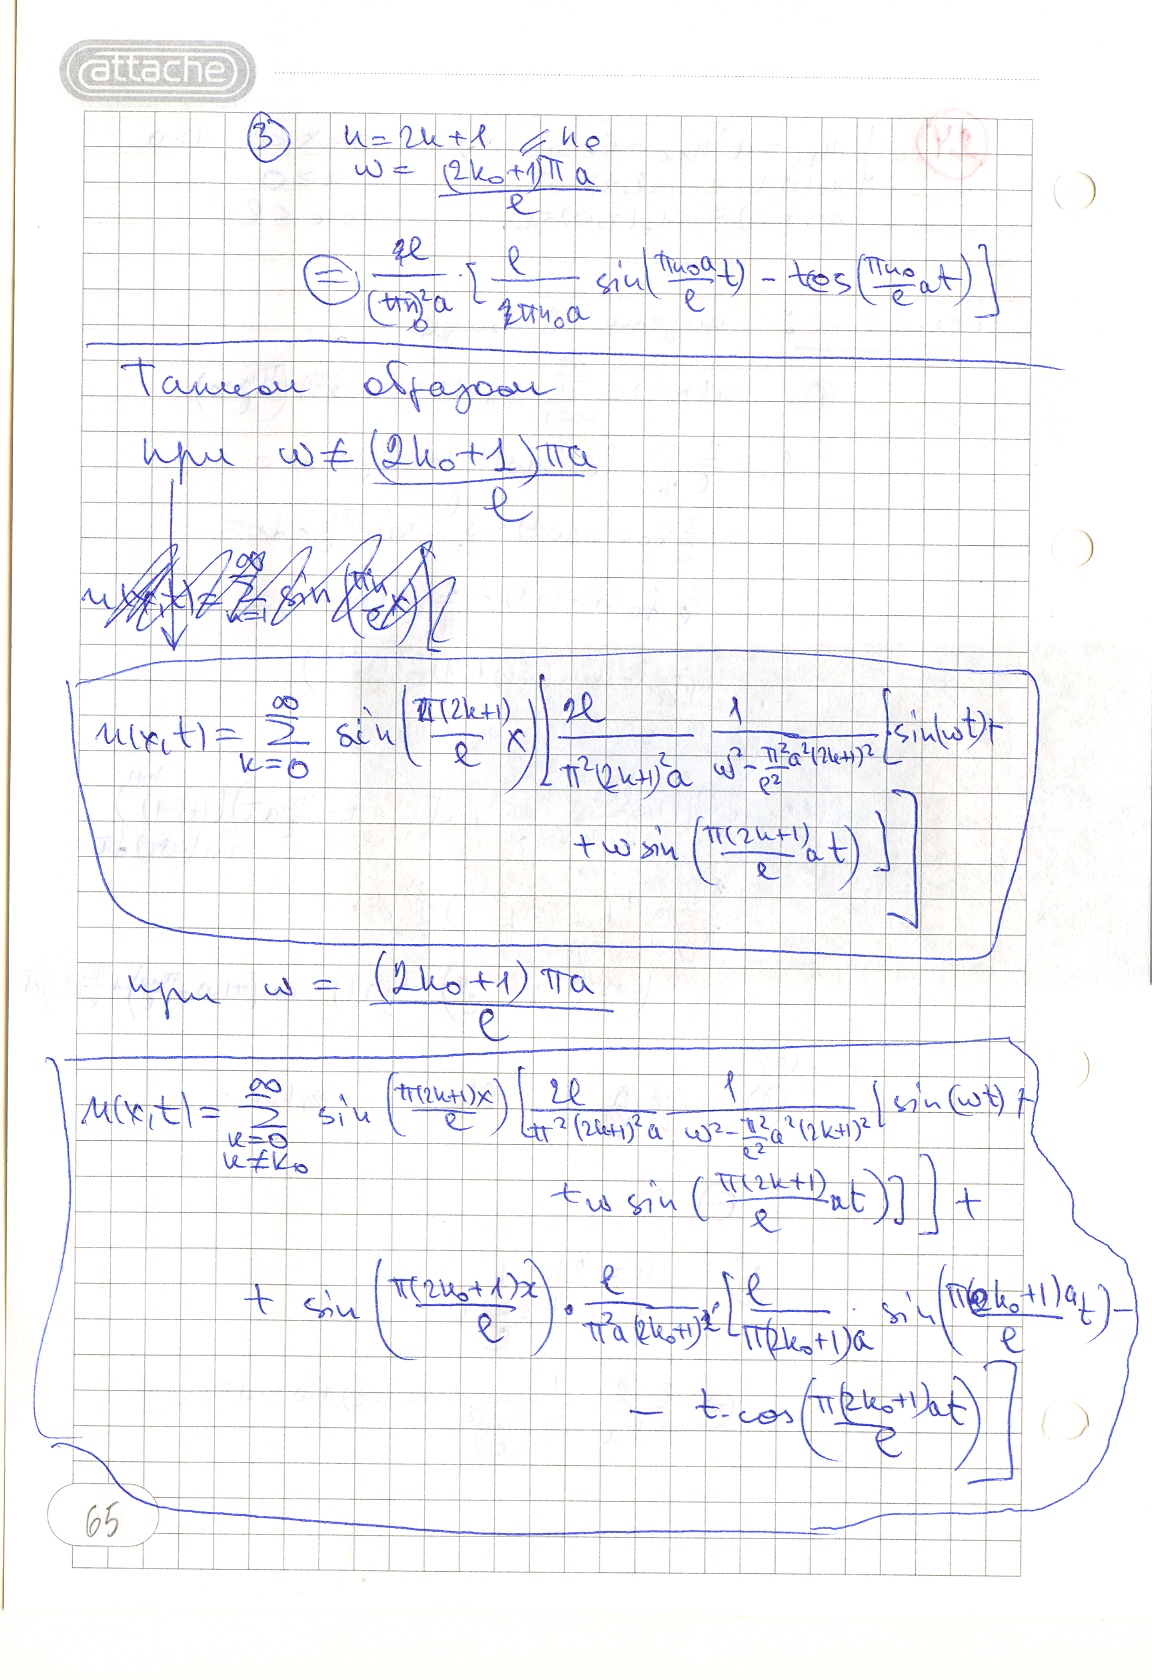 attache
③ n = 2k+1 = n₀
ω = (2k₀+1)πa / l
⊜ l/((πn₀)²a) · [ l/(πn₀a) sin(πn₀a/l t) − t cos(πn₀/l at) ]
Таким образом
при ω ≠ (2k₀+1)πa / l
u(x,t) = ∑_{k=0}^{∞} sin(π(2k+1)/l x) [ 2l/(π²(2k+1)²a) 1/(ω² − π²/l² a²(2k+1)²) [ sin(ωt) +
+ ω sin(π(2k+1)/l at) ] ]
при ω = (2k₀+1)πa / l
u(x,t) = ∑_{k=0, k≠k₀}^{∞} sin(π(2k+1)x/l) [ 2l/(π²(2k+1)²a) 1/(ω² − π²/l² a²(2k+1)²) [ sin(ωt) +
+ ω sin(π(2k+1)/l at) ] ] +
+ sin(π(2k₀+1)x/l) · l/(π²a(2k₀+1)²) · [ l/(π(2k₀+1)a) · sin(π(2k₀+1)a/l t) −
− t·cos(π(2k₀+1)at/l) ]
65